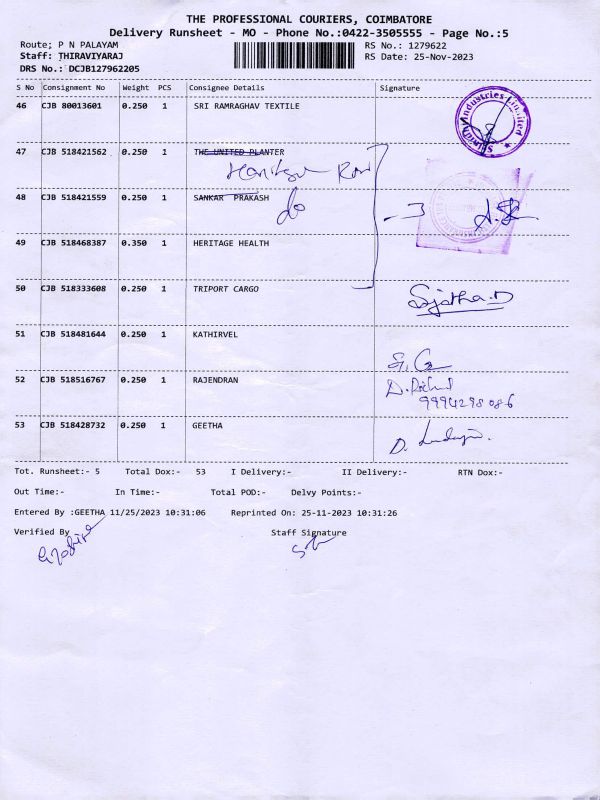 THE PROFESSIONAL COURIERS, COIMBATORE
Delivery Runsheet - MO - Phone No.:0422-3505555 - Page No.:5
Route; P N PALAYAM RS No.: 1279622
Staff: THIRAVIYARAJ RS Date: 25-Nov-2023
DRS No.: DCJB127962205
S No Consignment No Weight PCS Consignee Details Signature
46 CJB 80013601 0.250 1 SRI RAMRAGHAV TEXTILE
Industries Limited
47 CJB 518421562 0.250 1 THE UNITED PLANTER
48 CJB 518421559 0.250 1 SANKAR PRAKASH
do
49 CJB 518468387 0.350 1 HERITAGE HEALTH
50 CJB 518333608 0.250 1 TRIPORT CARGO
Sujatha.D
51 CJB 518481644 0.250 1 KATHIRVEL
52 CJB 518516767 0.250 1 RAJENDRAN
9994298086
53 CJB 518428732 0.250 1 GEETHA
Tot. Runsheet:- 5 Total Dox:- 53 I Delivery:- II Delivery:- RTN Dox:-
Out Time:- In Time:- Total POD:- Delvy Points:-
Entered By :GEETHA 11/25/2023 10:31:06 Reprinted On: 25-11-2023 10:31:26
Verified By Staff Signature